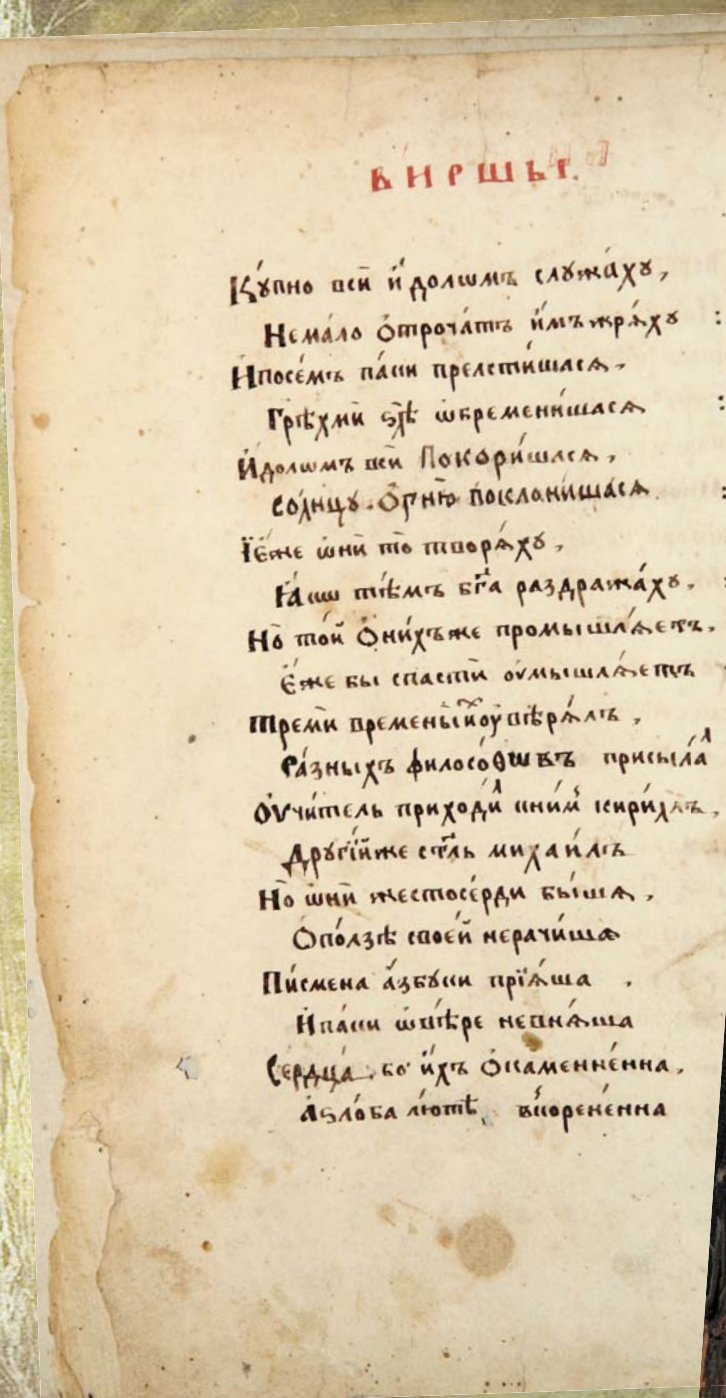 ВИРШЫ.
Ку́пно всѝ и҆́долѡмъ служа́ху,
Нема́ло ѻ҆троча́тъ и҆̀мъ жрѧ́ху :
И҆посе́мъ па́ки прелсти́шасѧ,
Грѣ́хми ѕѣлѣ̀ ѡбремени́шасѧ :
И҆́долѡмъ всѝ Покори́шасѧ,
со́лнцу. Ѻ҆гню̀ поклони́шасѧ :
Ꙗ҆́же ѡ҆нѝ то̀ творѧ́ху,
Ꙗ҆́кѡ тѣ́мъ бг҃а раздража́ху,
Но̀ то́й Ѻ҆ ни́хъже промышлѧ́етъ,
є҆́же бы спастѝ ᲂумышлѧ́етъ
треми̑ времены̀ и҆̀ ᲂу҆вѣрѧ́лъ,
Ра́зныхъ филосо́ѳѡвъ присыла́л
Ѹ҆чи́тель приходи́л с ни́м кири́ллъ,
Други́йже ст҃ль михаи́лъ
Но̀ ѡ҆нѝ жестосе́рди бы́шѧ,
Ѻ҆ по́лзѣ свое́й нерачи́шѧ
Пи́смена а҆́збуки прїѧ́ша ,
И҆па́ки ѡ҆ вѣ́ре невнѧ́ша
Сердца́. бо и҆́хъ ѻ҆каменне́нна,
А҆ѕло́ба лю́тѣ, вкорене́нна